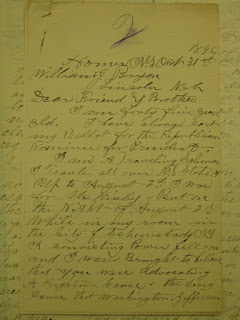 1896
Homer, NY Oct 31st
William J. Bryan
Lincoln Neb
Dear Friend & Brother
I am forty five years
old. I have always cast
my Ballot for the Republican
Nominee for President.
I am A Traveling Salesman
I Travel all over NY State &
Up to August 2d I was
for McKinley. But on
the Night of August 2d
While in my room in
the City of Schenectady NY
A convicting Power fell on
and I was Brought to believe
that You were Advocating
A Righteous Cause & the Same
Cause that Washington, Jefferson